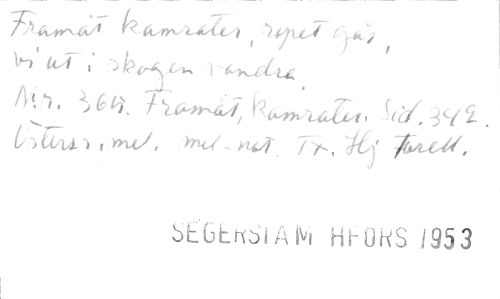 Framåt kamrater, ropet går,
vi ut i skogen vandra.
N:r. 364. Framåt, kamrater. Sid. 342.
Österr. mel. mel-not. Tx. Hj Torell.
SEGERSTAM HFORS 1953